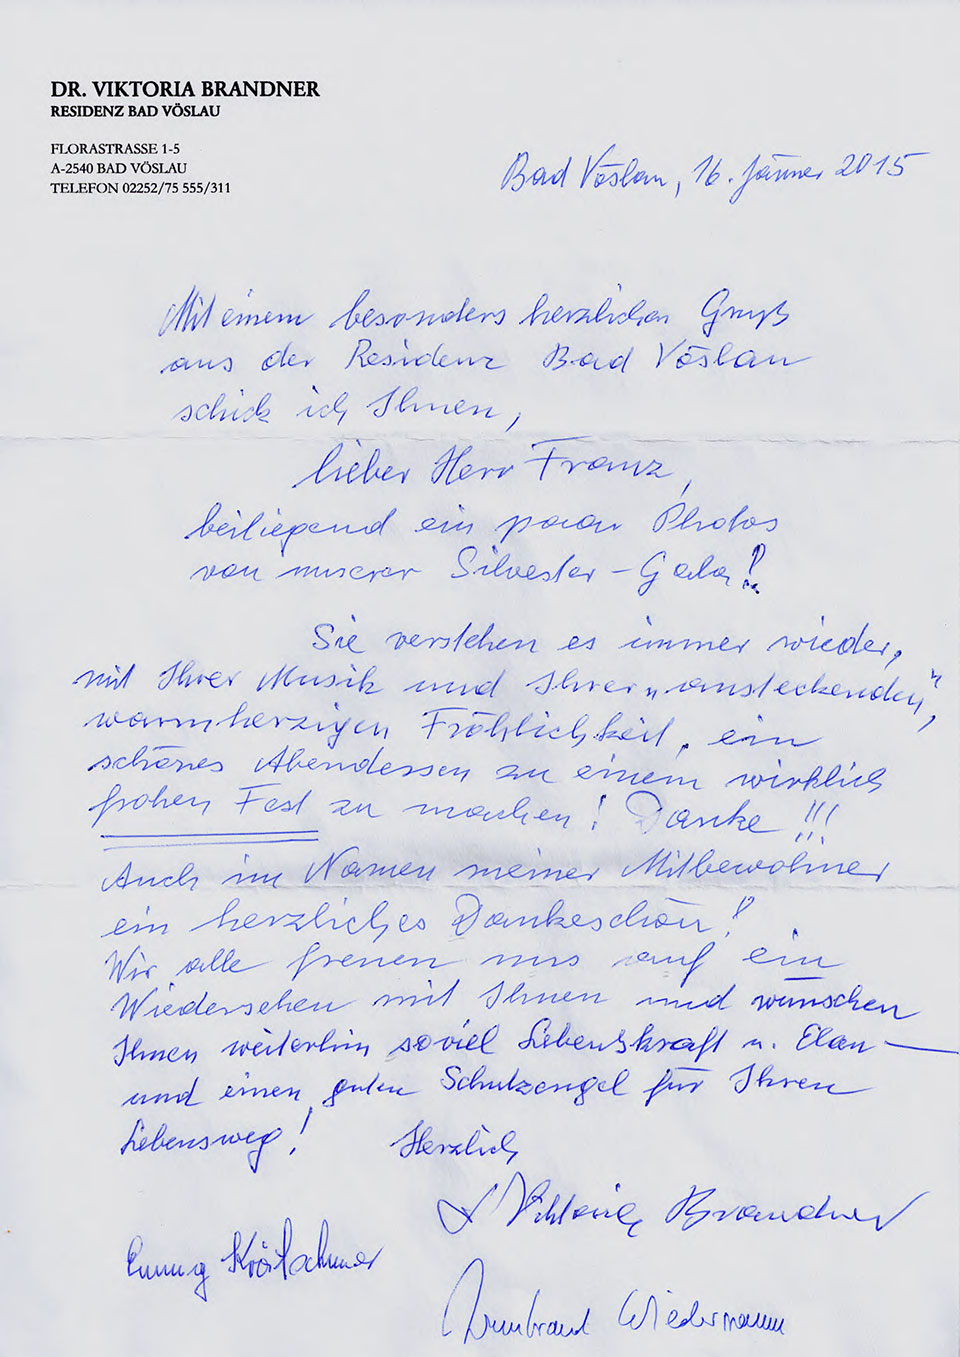 DR. VIKTORIA BRANDNER
RESIDENZ BAD VÖSLAU
FLORASTRASSE 1-5
A-2540 BAD VÖSLAU
TELEFON 02252/75 555/311
Bad Vöslau, 16. Jänner 2015
Mit einem besonders herzlichen Gruß
aus der Residenz Bad Vöslau
schick ich Ihnen,
lieber Herr Franz,
beiliegend ein paar Photos
von unserer Silvester-Gala!
Sie verstehen es immer wieder,
mit Ihrer Musik und Ihrer „ansteckenden",
warmherzigen Fröhlichkeit, ein
schönes Abendessen zu einem wirklich
frohen Fest zu machen! Danke!!!
Auch im Namen meiner Mitbewohner
ein herzliches Dankeschön!
Wir alle freuen uns auf ein
Wiedersehen mit Ihnen und wünschen
Ihnen weiterhin soviel Lebenskraft u. Elan —
und einen guten Schutzengel für Ihren
Lebensweg! Herzlich
Viktoria Brandner
Wiedermann